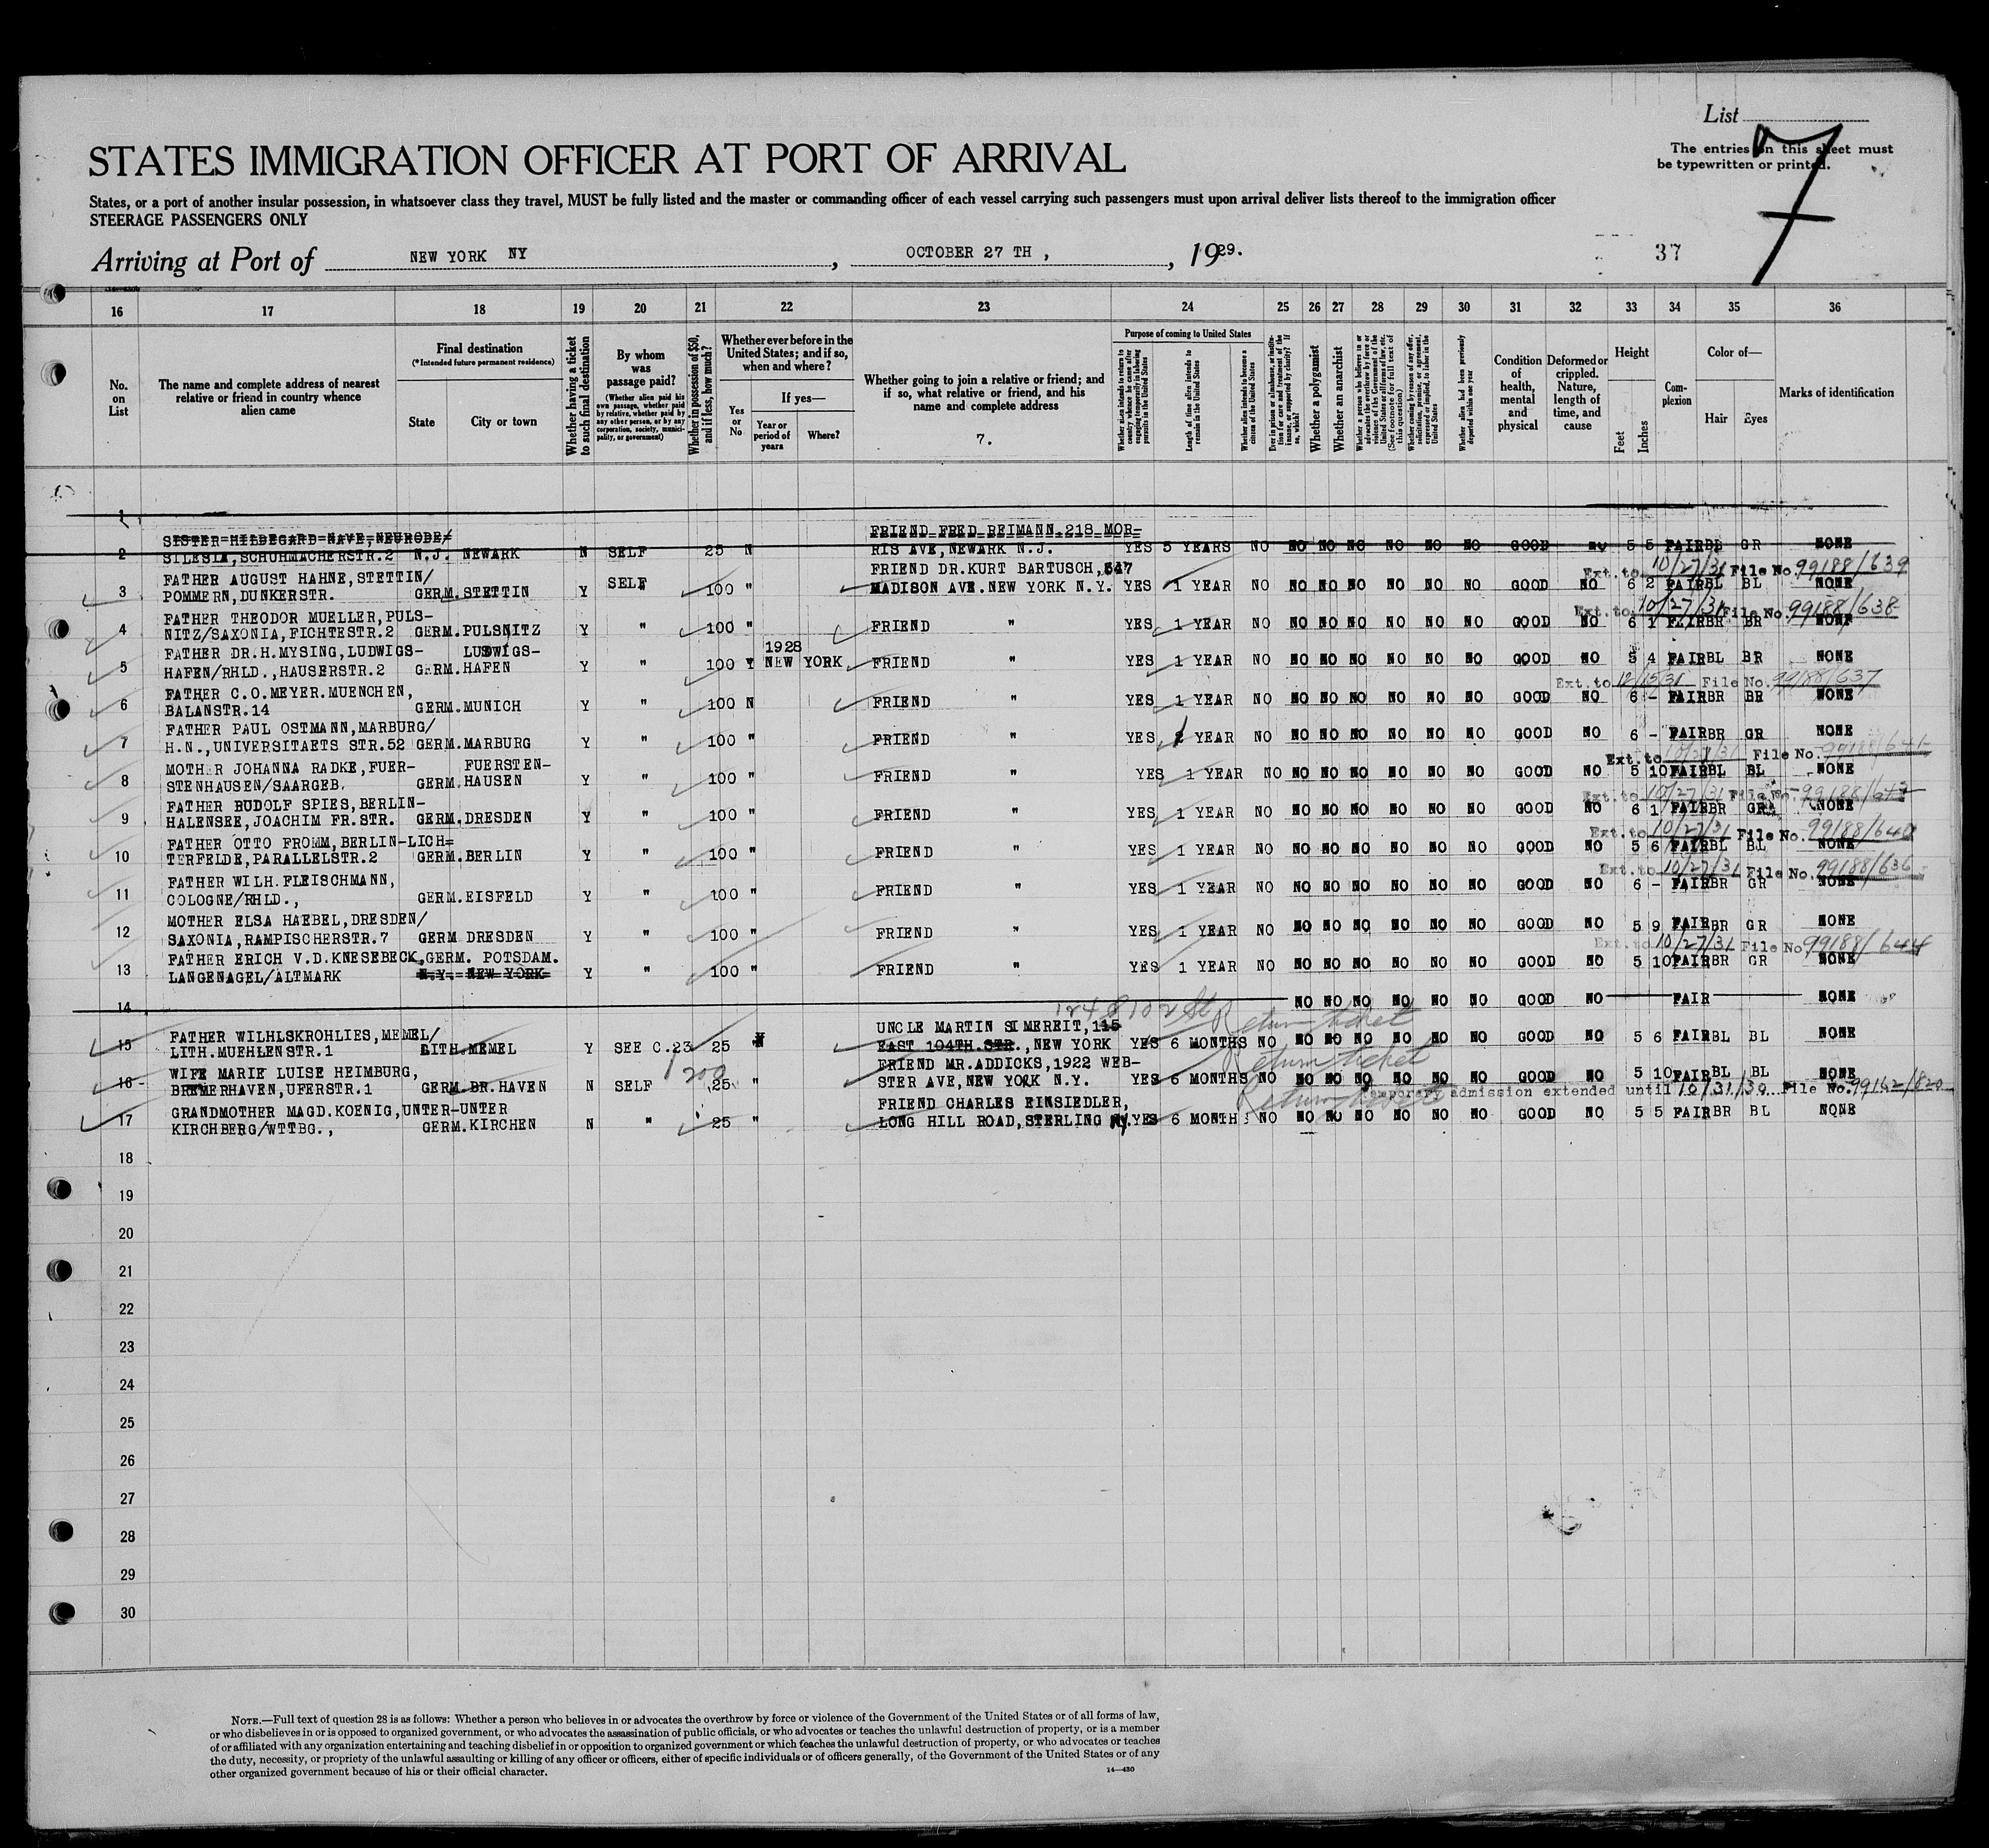 List
The entries on this sheet must
be typewritten or printed.
7
STATES IMMIGRATION OFFICER AT PORT OF ARRIVAL
States, or a port of another insular possession, in whatsoever class they travel, MUST be fully listed and the master or commanding officer of each vessel carrying such passengers must upon arrival deliver lists thereof to the immigration officer
STEERAGE PASSENGERS ONLY
Arriving at Port of NEW YORK NY, OCTOBER 27 TH, 1929.
37
16 17 18 19 20 21 22 23 24 25 26 27 28 29 30 31 32 33 34 35 36
No. on List
The name and complete address of nearest relative or friend in country whence alien came
Final destination
(*Intended future permanent residence)
State
City or town
Whether having a ticket to such final destination
By whom was passage paid?
(Whether alien paid his own passage, whether paid by relative, whether paid by any other person, or by any corporation, society, municipality, or government)
Whether in possession of $50, and if less, how much?
Whether ever before in the United States; and if so, when and where?
Yes or No
If yes—
Year or period of years
Where?
Whether going to join a relative or friend; and if so, what relative or friend, and his name and complete address
7.
Purpose of coming to United States
Whether alien intends to return to country whence he came after engaging temporarily in laboring pursuits in the United States
Length of time alien intends to remain in the United States
Whether alien intends to become a citizen of the United States
Ever in prison or almshouse, or institution for care and treatment of the insane, or supported by charity? If so, which?
Whether a polygamist
Whether an anarchist
Whether a person who believes in or advocates the overthrow by force or violence of the Government of the United States or all forms of law, etc. (See footnote for full text of this question)
Whether coming by reason of any offer, solicitation, promise, or agreement, expressed or implied, to labor in the United States
Whether alien had been previously deported within one year
Condition of health, mental and physical
Deformed or crippled. Nature, length of time, and cause
Height
Feet
Inches
Complexion
Color of—
Hair
Eyes
Marks of identification
1
SISTER HILDEGARD NAVE, NEURODE/ FRIEND FRED REIMANN, 218 MOR=
2 SILESIA, SCHUHMACHERSTR.2 N.J. NEWARK N SELF 25 N RIS AVE, NEWARK N.J. YES 5 YEARS NO NO NO NO NO NO NO GOOD NO 5 5 FAIR BL GR NONE
FATHER AUGUST HAHNE, STETTIN/ FRIEND DR. KURT BARTUSCH, 347 Ext. to 10/27/31 File No. 99188/639
3 POMMERN, DUNKERSTR. GERM. STETTIN Y SELF 100 " MADISON AVE. NEW YORK N.Y. YES 1 YEAR NO NO NO NO NO NO NO GOOD NO 6 2 FAIR BL BL NONE
FATHER THEODOR MUELLER, PULS- Ext. to 10/27/31 File No. 99188/638
4 NITZ/SAXONIA, FICHTESTR.2 GERM. PULSNITZ Y " 100 " FRIEND " YES 1 YEAR NO NO NO NO NO NO NO GOOD NO 6 1 FAIR BR BR NONE
FATHER DR. H. MYSING, LUDWIGS- LUDWIGS- 1928
5 HAFEN/RHLD., HAUSERSTR.2 GERM. HAFEN Y " 100 Y NEW YORK FRIEND " YES 1 YEAR NO NO NO NO NO NO NO GOOD NO 5 4 FAIR BL BR NONE
FATHER C.O. MEYER. MUENCHEN, Ext. to 12/15/31 File No. 99188/637
6 BALANSTR.14 GERM. MUNICH Y " 100 N FRIEND " YES 1 YEAR NO NO NO NO NO NO NO GOOD NO 6 - FAIR BR BR NONE
FATHER PAUL OSTMANN, MARBURG/
7 H.N., UNIVERSITAETS STR.52 GERM. MARBURG Y " 100 " FRIEND " YES 1 YEAR NO NO NO NO NO NO NO GOOD NO 6 - FAIR BR GR NONE
MOTHER JOHANNA RADKE, FUER- FUERSTEN- Ext. to 10/27/31 File No.
8 STENHAUSEN/SAARGEB. GERM. HAUSEN Y " 100 " FRIEND " YES 1 YEAR NO NO NO NO NO NO NO GOOD NO 5 10 FAIR BL BL NONE
FATHER RUDOLF SPIES, BERLIN- Ext. to 10/27/31 File No.
9 HALENSEE, JOACHIM FR.STR. GERM. DRESDEN Y " 100 " FRIEND " YES 1 YEAR NO NO NO NO NO NO NO GOOD NO 6 1 FAIR BR GR NONE
FATHER OTTO FROMM, BERLIN-LICH= Ext. to 10/27/31 File No. 99188/640
10 TERFELDE, PARALLELSTR.2 GERM. BERLIN Y " 100 " FRIEND " YES 1 YEAR NO NO NO NO NO NO NO GOOD NO 5 6 FAIR BL BL NONE
FATHER WILH. FLEISCHMANN, Ext. to 10/27/31 File No. 99188/636
11 COLOGNE/RHLD., GERM. EISFELD Y " 100 " FRIEND " YES 1 YEAR NO NO NO NO NO NO NO GOOD NO 6 - FAIR BR GR NONE
MOTHER ELSA HAEBEL, DRESDEN/
12 SAXONIA, RAMPISCHERSTR.7 GERM DRESDEN Y " 100 " FRIEND " YES 1 YEAR NO NO NO NO NO NO NO GOOD NO 5 9 FAIR BR GR NONE
FATHER ERICH V.D. KNESEBECK, GERM. POTSDAM. Ext. to 10/27/31 File No. 99188/644
13 LANGENAGEL/ALTMARK N.Y. NEW YORK Y " 100 " FRIEND " YES 1 YEAR NO NO NO NO NO NO NO GOOD NO 5 10 FAIR BR GR NONE
14 NO NO NO NO NO NO GOOD NO FAIR NONE
FATHER WILHLSKROHLIES, MEMEL/ UNCLE MARTIN SIMEREIT, 115 Return ticket
15 LITH. MUEHLENSTR.1 LITH. MEMEL Y SEE C.23 25 N EAST 104TH. STR., NEW YORK YES 6 MONTHS NO NO NO NO NO NO NO GOOD NO 5 6 FAIR BL BL NONE
WIFE MARIE LUISE HEIMBURG, 200 FRIEND MR. ADDICKS, 1922 WEB- Return ticket
16 BREMERHAVEN, UFERSTR.1 GERM. BR. HAVEN N SELF 25 " STER AVE, NEW YORK N.Y. YES 6 MONTHS NO NO NO NO NO NO NO GOOD NO 5 10 FAIR BL BL NONE
GRANDMOTHER MAGD. KOENIG, UNTER-UNTER FRIEND CHARLES EINSIEDLER, Return ticket Temporary admission extended until 10/31/30 File No. 99162/820
17 KIRCHBERG/WTTBG., GERM. KIRCHEN N " 25 " LONG HILL ROAD, STERLING NY. YES 6 MONTH NO NO NO NO NO NO NO GOOD NO 5 5 FAIR BR BL NONE
18
19
20
21
22
23
24
25
26
27
28
29
30
NOTE.—Full text of question 28 is as follows: Whether a person who believes in or advocates the overthrow by force or violence of the Government of the United States or of all forms of law,
or who disbelieves in or is opposed to organized government, or who advocates the assassination of public officials, or who advocates or teaches the unlawful destruction of property, or is a member
of or affiliated with any organization entertaining and teaching disbelief in or opposition to organized government or which teaches the unlawful destruction of property, or who advocates or teaches
the duty, necessity, or propriety of the unlawful assaulting or killing of any officer or officers, either of specific individuals or of officers generally, of the Government of the United States or of any
other organized government because of his or their official character.
14—430